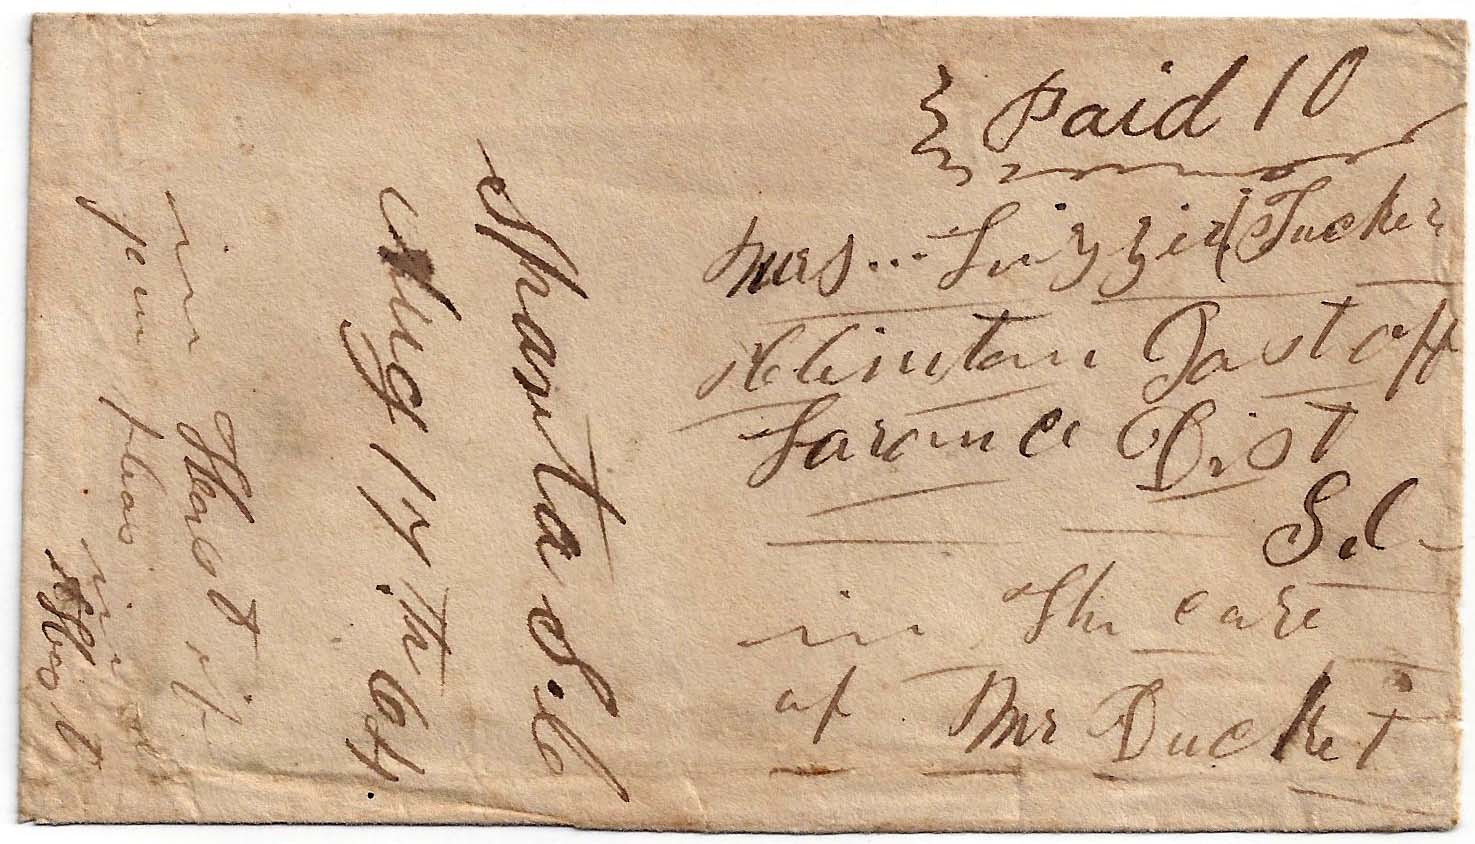 Paid 10
Mrs... Lizzie Tucker
Clinton Post off
Larance Dist
S.C
in The care
of Mr Ducket
Sparta S.C
Aug 17.th 64.
in Hast if
in